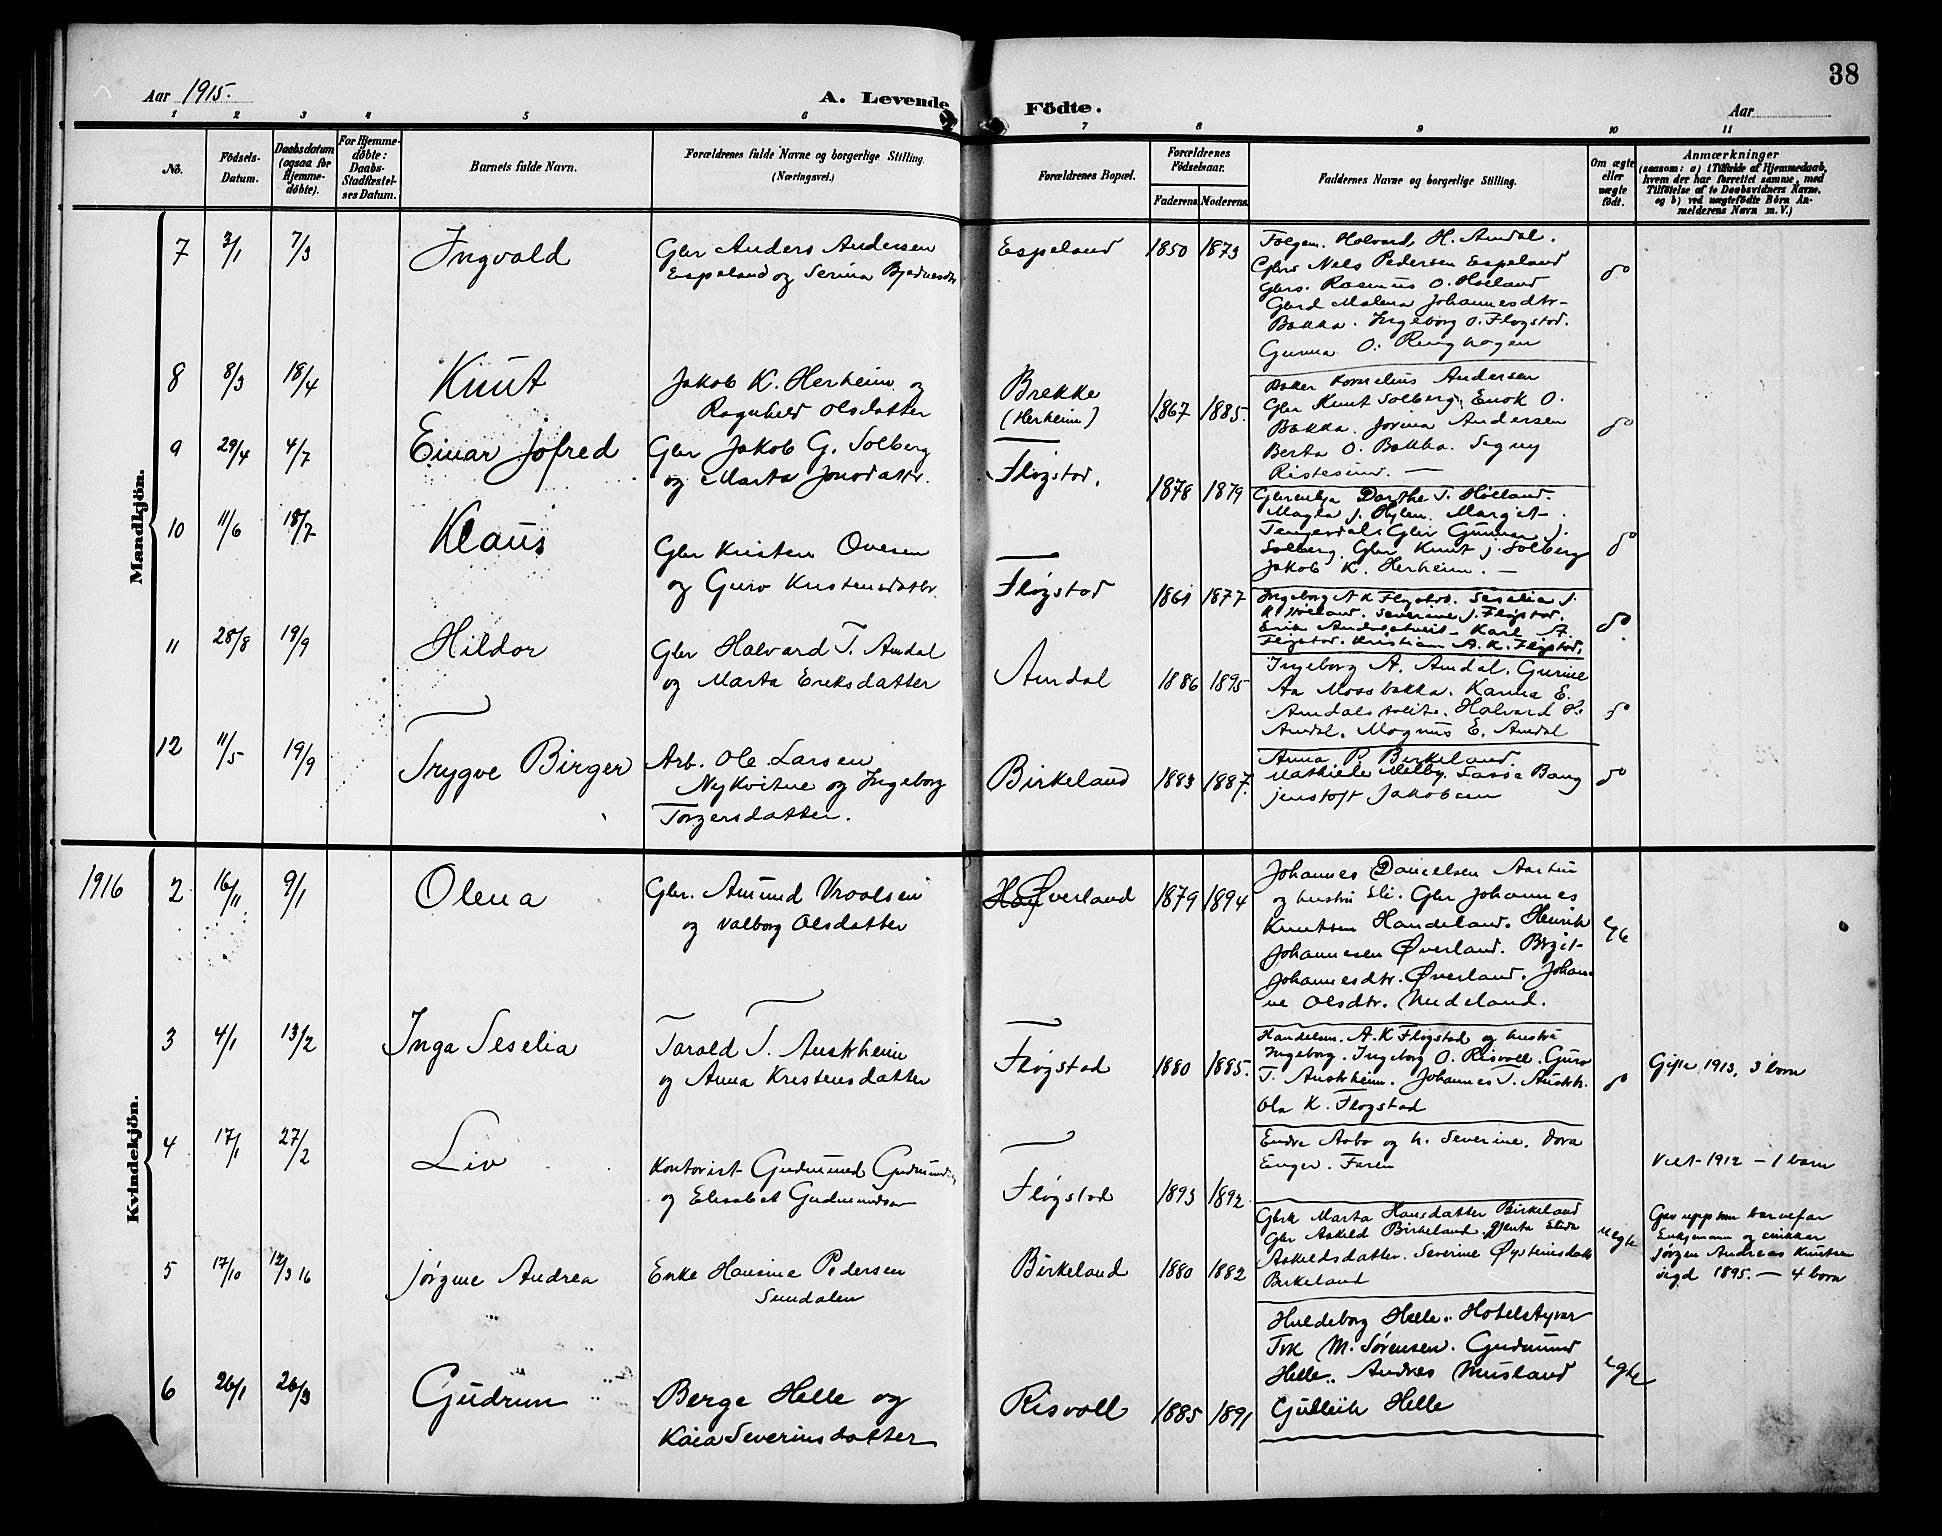 38
Aar 1915.
A. Levende Födte.
Aar
1 2 3 4 5 6 7 8 9 10 11
No.
Födsels-Datum.
Daabsdatum (ogsaa for Hjemme-döbte).
For Hjemme-döbte: Daabs-Stadfæstel-ses Datum.
Barnets fulde Navn.
Forældrenes fulde Navne og borgerlige Stilling.
(Næringsvei.)
Forældrenes Bopæl.
Forældrenes Födselsaar.
Faderens. Moderens.
Faddernes Navne og borgerlige Stilling.
Om ægte eller uægte födt.
Anmærkninger
(saasom: a) i Tilfælde af Hjemmedaab,
hvem der har forrettet samme, med
Tilföielse af to Daabsvidners Navne.
og b) ved uægtefödte Börn An-
melderens Navn m. V.)
Mandkjön.
7 3/1 7/3 Ingvald
Gbr Anders Andersen
Espeland og Serina
Espeland 1850 1873
Halvard H. Amdal.
Gbrs Nels Pedersen Espeland
Gbrs. Rasmus O. Høiland
Malena Johannesdtr-
Bakka. Ingeborg O. Flogstod.
Gunna O. Ringhagen
do
8 8/3 18/4 Knut
Jakob K. Herheim og
Ragnhild Olsdatter
Brekke
(Herheim)
1867 1885.
Baker Kornelius Andersen
Gbr Knut Solberg. Enok O.
Bakka. Jorina Andersen
Berta O. Bakka. Signy
Ristesund. —
do
9 29/4 4/7 Einar Jofred
Gbr Jakob G. Solberg
og Marta Jonsdattr.
Fløgstod.
1878 1879
Dorthe T. Høiland.
Magla J. Hylen. Margit
Tengesdal. Gbr Gunnar J.
Solberg. Gbr Knut J. Solberg
Jakob K. Herheim. —
do
10 11/6 18/7 Klaus
Gbr Kristen Ovesen
og Guro Kristensdattr.
Fløgstod
1861 1877
Ingeborg A K Flogstod. Seselia J.
K. Høiland. Severine J. Fløgstod.
Erik Amdalstveit. Karl A.
Fløgstod. Kristian A. K. Fløgstod.
do.
11 28/8 19/9 Hildor
Gbr Halvard T. Amdal
og Marta Eriksdatter
Amdal
1886 1895
Ingeborg A. Amdal. Gurine
Aa Mossbakka. Karina E.
Amdalstveit. Halvard H.
Amdal. Magnus E. Amdal
do
12 11/5 19/9 Trygve Birger
Arb. Ole Larsen
Nykvitne og Ingeborg
Torgersdatter.
Birkeland
1883 1887.
Anna P. Birkeland.
Mathilde Melby. Lasse Bang
Jenstoft Jakobsen
do
Kvindekjön.
1916
2 16/11 9/1 Olena
Gbr. Amund Vraalsen
og Valborg Olsdatter
Øverland
1879 1894
Johannes Danielsen Aartun
og hustru Eli. Gbr Johannes
Knutsen Handeland. Henrik
Johannesen Øverland. Birgit
Johannesdtr. Øverland. Johan-
ne Olsdtr. Medeland.
egte
3 4/1 13/2 Inga Seselia
Tarald T. Austrheim
og Anna Kristensdatter
Fløgstod
1880 1885.
Handelsm. A. K Flogstod og hustru
Ingeborg. Ingeborg O. Risvoll. Guro
T. Austrheim. Johannes T. Austrh.
Ola K. Flogstad
do
Gifte 1913, 3 born
4 17/1 27/2 Liv
Kontorist Gudmund Gudmunds
og Elisabet Gudmundsen
Fløgstod
1893 1892
Endre Aabo og h. Severine. Dora
Enger. Faren
Viet 1912 — 1 barn
5 17/10 12/3 16 Jørgine Andrea
Enke Hansine Pedersen
Sundalen
Birkeland
1880 1882
Marta Hansdatter Birkeland
Gbr Askild Birkeland. Jenta Elida
Askeldsdatter. Severine Øysteinsdatt
Birkeland
uegte
Gav upp som barnefar
Enkjemann og snikkar
Jørgen Andreas Knutsen
1895. — 4 born
6 26/1 26/3 Gudrun
Berge Helle og
Kaia Severinsdatter
Risvoll
1885 1891
Huldeborg Helle. Hotelstyrar
Frk M. Sørensen. Gudmund
Helle. Andres Musland
Gulleik Helle
egte